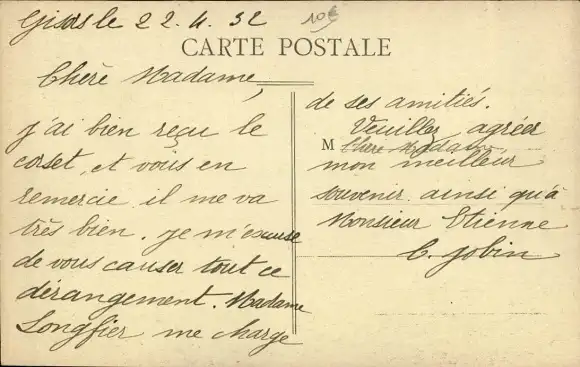 Gisors le 22.4.32
10€
CARTE POSTALE
Chère Madame,
j'ai bien reçu le
corset, et vous en
remercie il me va
très bien. je m'excuse
de vous causer tout ce
dérangement. Madame
Longfier me charge
de ses amitiés.
Veuillez agréer
M Chère Madame
mon meilleur
souvenir ainsi qu'à
Monsieur Etienne
C. Jobin